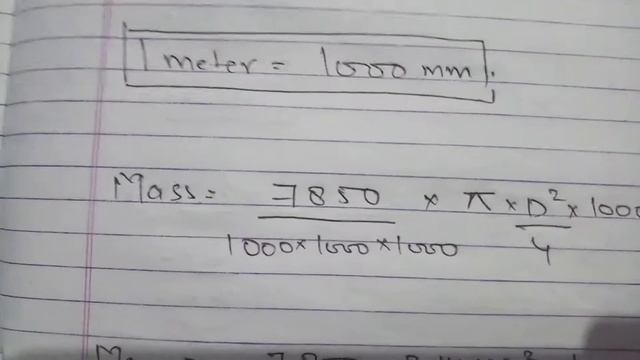 1 meter = 1000 mm.
Mass = 7850 × π × D² × 1000
1000×1000×1000 4